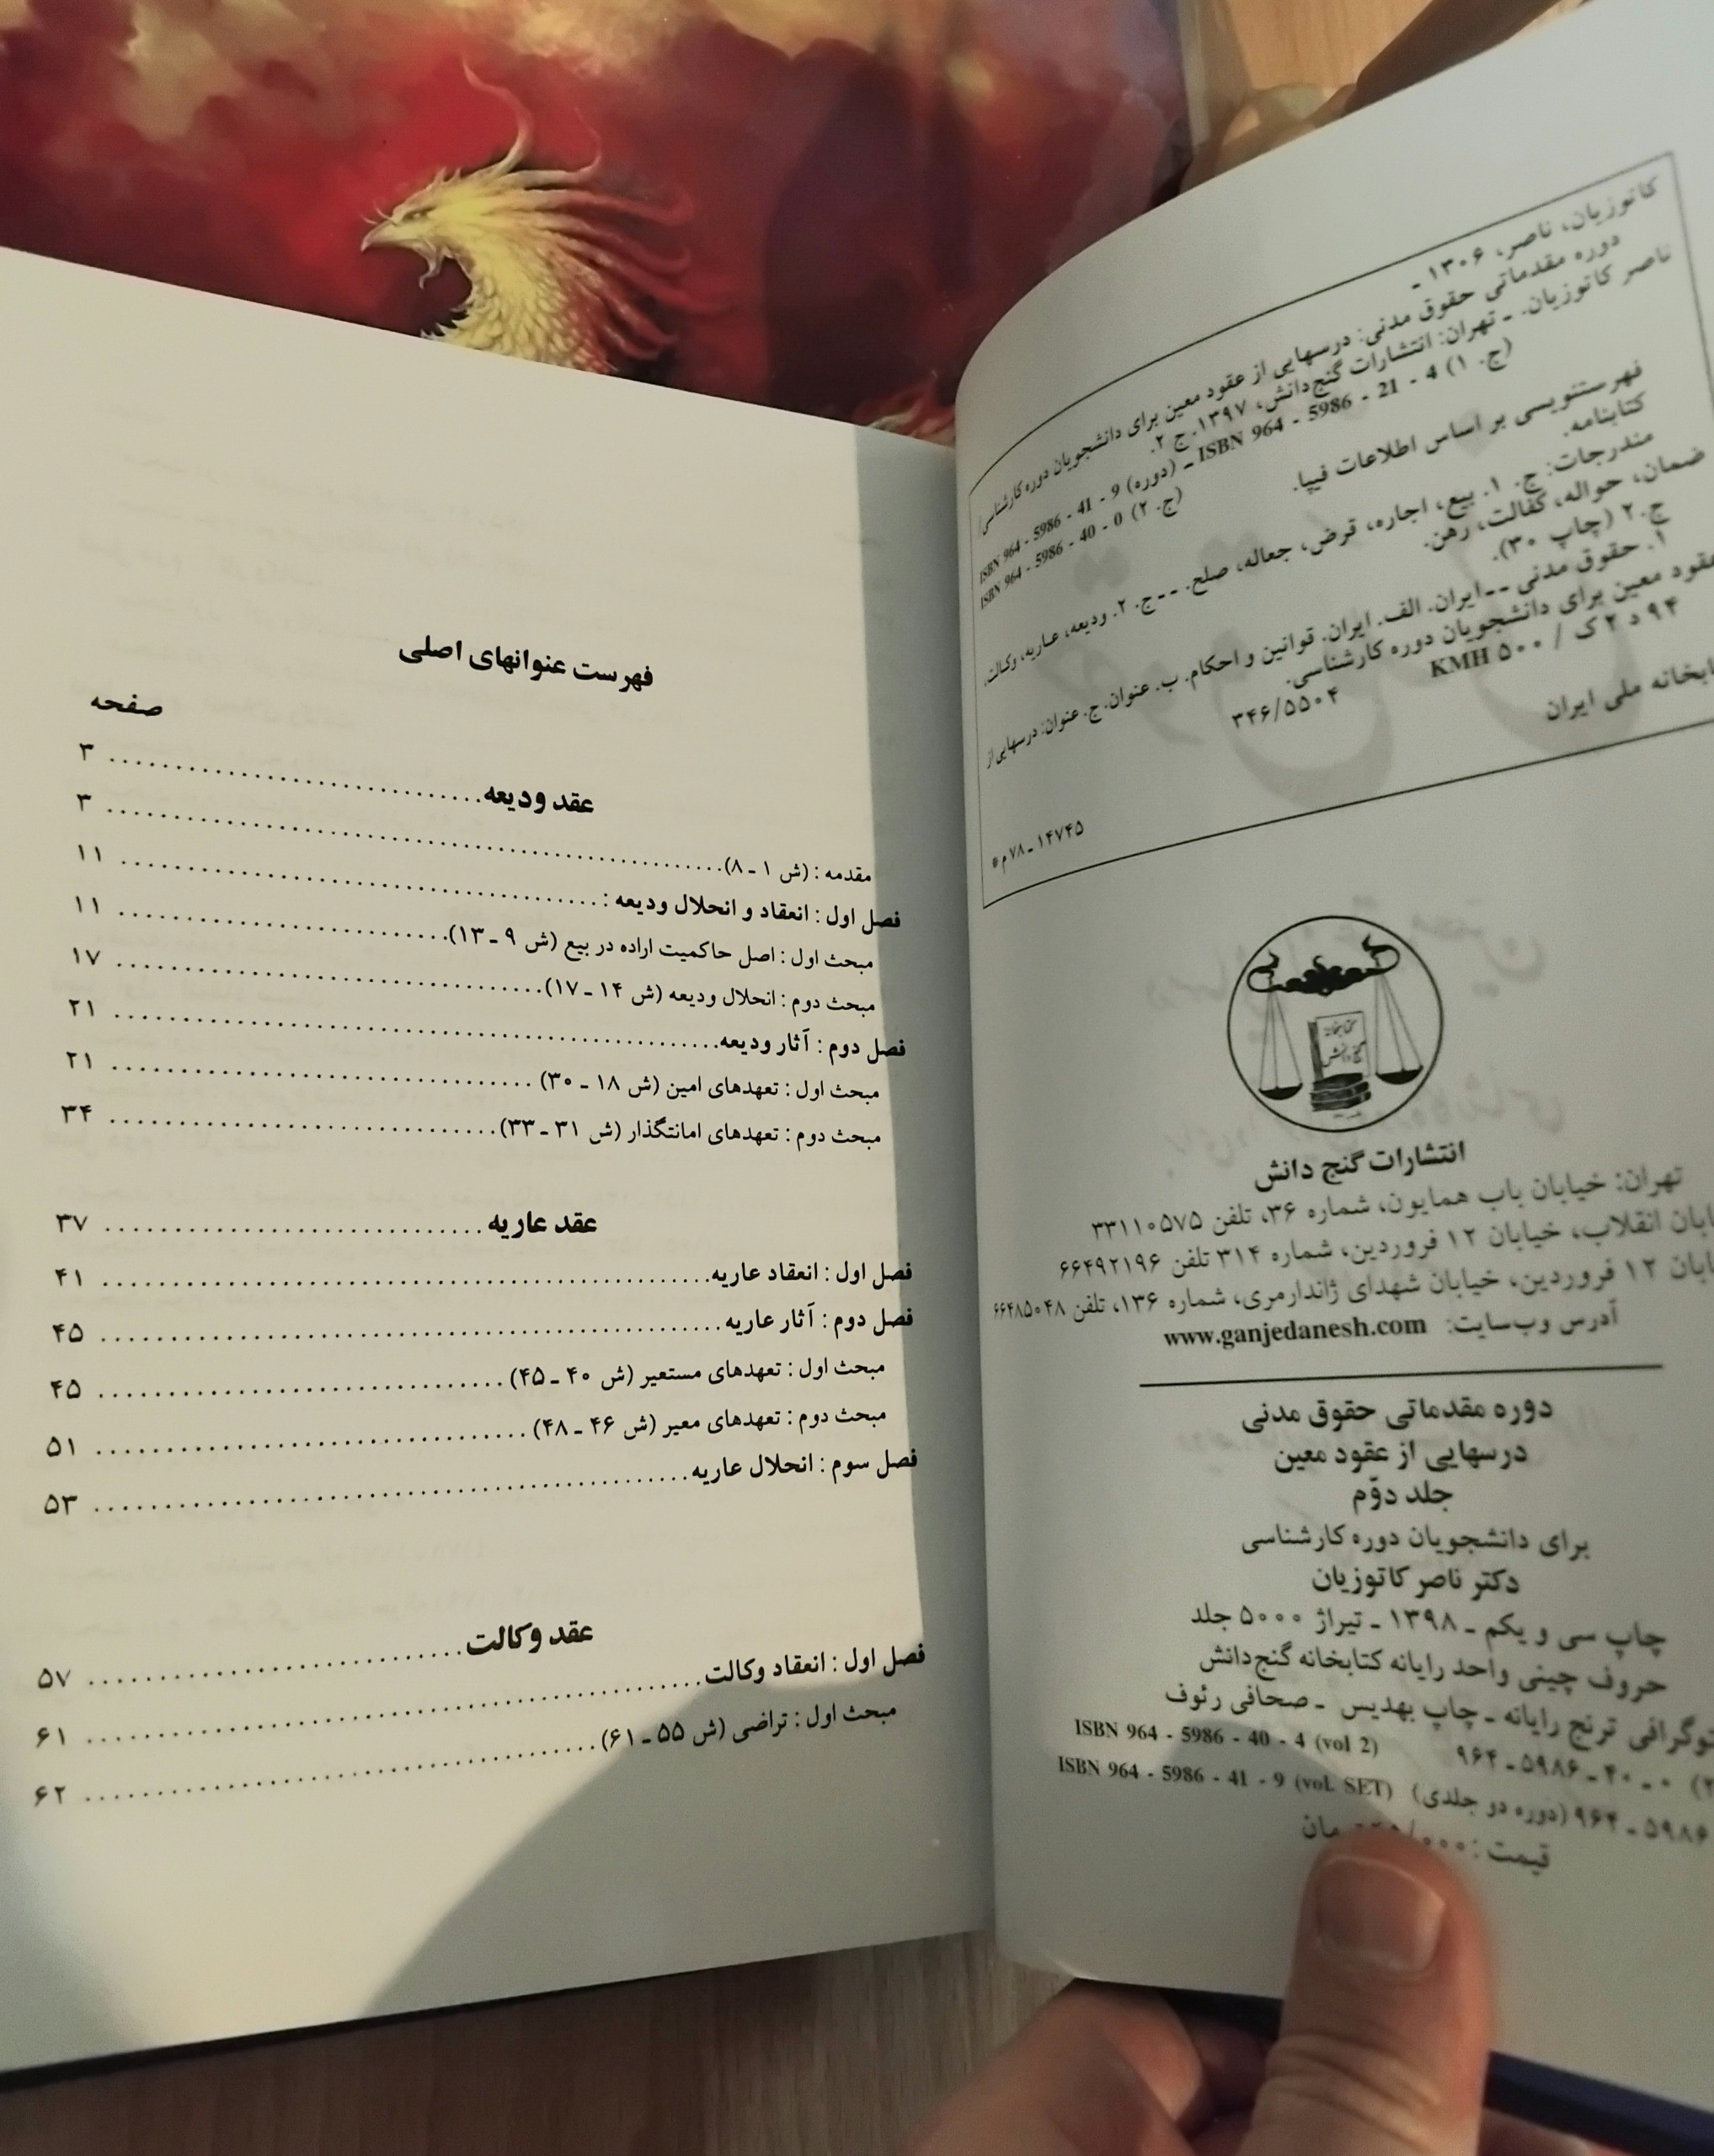 کاتوزیان، ناصر، ۱۳۰۶ ـ
دوره مقدماتی حقوق مدنی: درسهایی از عقود معین برای دانشجویان دوره کارشناسی/
ناصر کاتوزیان. ـ تهران: انتشارات گنج‌دانش، ۱۳۹۷. ج ۲.
ISBN 964 - 5986 - 41 - 9 (دوره) ـ ISBN 964 - 5986 - 21 - 4 (ج. ۱)
ISBN 964 - 5986 - 40 - 0 (ج. ۲)
فهرستنویسی بر اساس اطلاعات فیپا.
کتابنامه.
مندرجات: ج. ۱. بیع، اجاره، قرض، جعاله، صلح. -- ج. ۲. ودیعه، عاریه، وکالت،
ضمان، حواله، کفالت، رهن.
ج. ۲ (چاپ ۳۰).
۱. حقوق مدنی -- ایران. الف. ایران. قوانین و احکام. ب. عنوان. ج. عنوان: درسهایی از
عقود معین برای دانشجویان دوره کارشناسی.
۹۴ د ۲ ک / ۵۰۰ KMH
۳۴۶/۵۵۰۴
ملی ایران
۱۴۷۴۵ ـ ۷۸م
کتابخانه
گنج دانش
انتشارات گنج دانش
تهران: خیابان باب همایون، شماره ۳۶، تلفن ۳۳۱۱۰۵۷۵
انقلاب، خیابان ۱۲ فروردین، شماره ۳۱۴ تلفن ۶۶۴۹۲۱۹۶
۱۲ فروردین، خیابان شهدای ژاندارمری، شماره ۱۳۶، تلفن ۶۶۴۸۵۰۴۸
آدرس وب‌سایت: www.ganjedanesh.com
دوره مقدماتی حقوق مدنی
درسهایی از عقود معین
جلد دوّم
برای دانشجویان دوره کارشناسی
دکتر ناصر کاتوزیان
چاپ سی و یکم ـ ۱۳۹۸ ـ تیراژ ۵۰۰۰ جلد
حروف چینی واحد رایانه کتابخانه گنج‌دانش
ترنج رایانه ـ چاپ بهدیس ـ صحافی رئوف
۹۶۴ ـ ۵۹۸۶ ـ ۴۰ ـ ۰ ISBN 964 - 5986 - 40 - 4 (vol 2)
۹۶۴ ـ ۵۹۸۶ (دوره دو جلدی) ISBN 964 - 5986 - 41 - 9 (vol. SET)
قیمت:
فهرست عنوانهای اصلی
صفحه
عقد ودیعه .......... ۳
مقدمه : (ش ۱ ـ ۸) .......... ۳
فصل اول : انعقاد و انحلال ودیعه : .......... ۱۱
مبحث اول : اصل حاکمیت اراده در بیع (ش ۹ ـ ۱۳) .......... ۱۱
مبحث دوم : انحلال ودیعه (ش ۱۴ ـ ۱۷) .......... ۱۷
فصل دوم : آثار ودیعه .......... ۲۱
مبحث اول : تعهدهای امین (ش ۱۸ ـ ۳۰) .......... ۲۱
مبحث دوم : تعهدهای امانتگذار (ش ۳۱ ـ ۳۳) .......... ۳۴
عقد عاریه .......... ۳۷
فصل اول : انعقاد عاریه .......... ۴۱
فصل دوم : آثار عاریه .......... ۴۵
مبحث اول : تعهدهای مستعیر (ش ۴۰ ـ ۴۵) .......... ۴۵
مبحث دوم : تعهدهای معیر (ش ۴۶ ـ ۴۸) .......... ۵۱
فصل سوم : انحلال عاریه .......... ۵۳
عقد وکالت .......... ۵۷
فصل اول : انعقاد وکالت .......... ۶۱
مبحث اول : تراضی (ش ۵۵ ـ ۶۱) .......... ۶۲